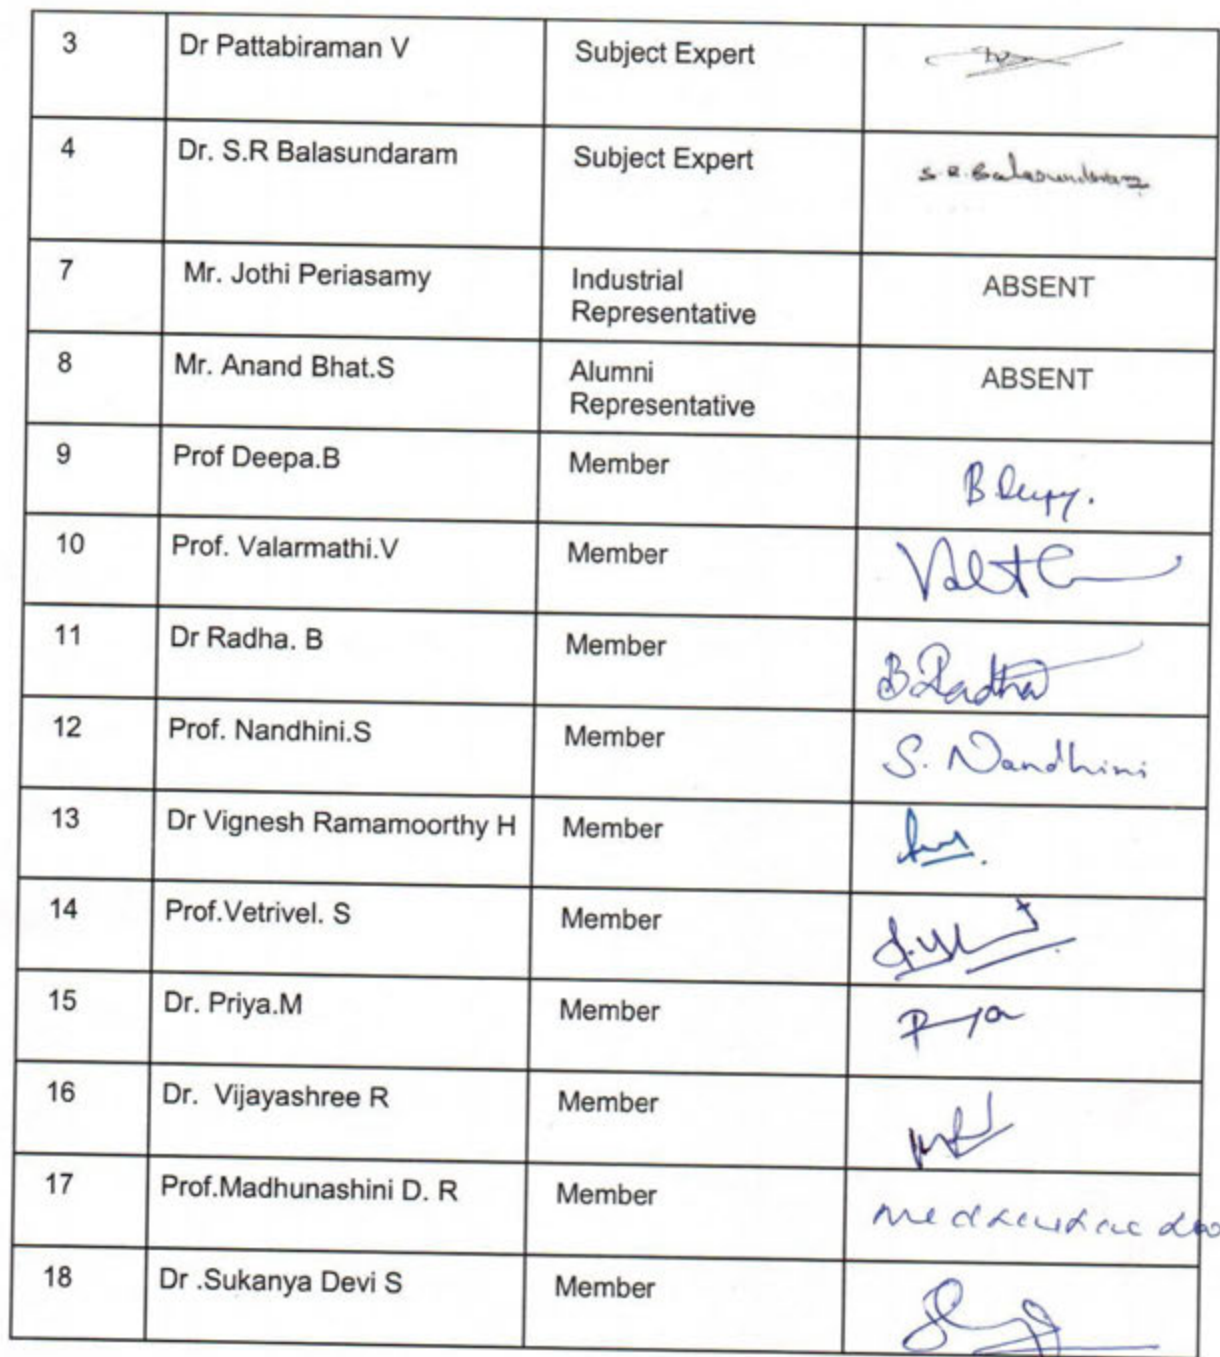 3 Dr Pattabiraman V Subject Expert
4 Dr. S.R Balasundaram Subject Expert S.R.Balasundaram
7 Mr. Jothi Periasamy Industrial Representative ABSENT
8 Mr. Anand Bhat.S Alumni Representative ABSENT
9 Prof Deepa.B Member
10 Prof. Valarmathi.V Member
11 Dr Radha. B Member B.Radha
12 Prof. Nandhini.S Member S. Nandhini
13 Dr Vignesh Ramamoorthy H Member
14 Prof.Vetrivel. S Member
15 Dr. Priya.M Member
16 Dr. Vijayashree R Member
17 Prof.Madhunashini D. R Member
18 Dr .Sukanya Devi S Member